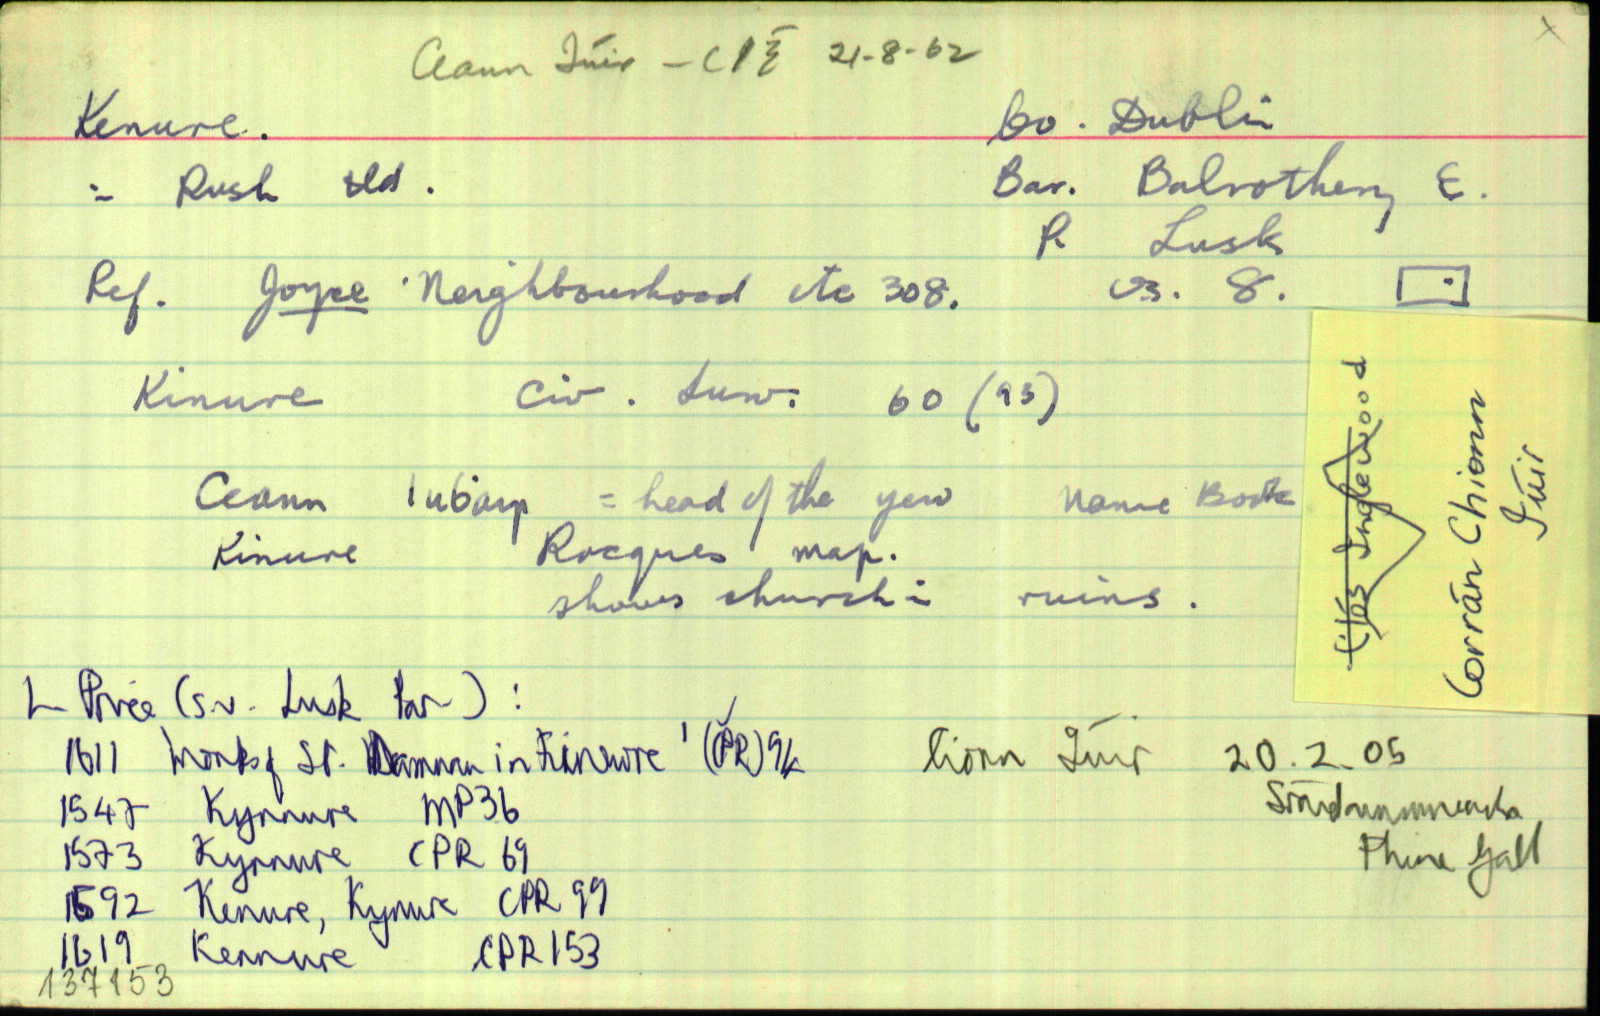 x
Ceann Iúir – CPÉ 21-8-62
Kenure. Co. Dublin
:- Rush old. Bar. Balrothery E.
P. Lusk
Ref. Joyce 'Neighbourhood etc 308. OS. 8.
Kinure Civ. Surv: 60 (93)
Ceann Iubhair = head of the yew Name Book
Kinure Rocques map.
shows church in ruins.
L Privée (s.v. Lusk Par) :
1611 Monks of St. in Kinure' (CPR) 94
1547 Kynnure MP36
1573 Kynnure CPR 69
1592 Kenure, Kynure CPR 99
1619 Kennure CPR 153
137153
Cionn Iúir 20.2.05
Sráidainmneacha
Fhine Gall
Clós Inglewood
Corrán Chionn
Iúir